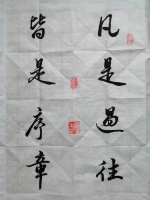 凡是過往
皆是序章